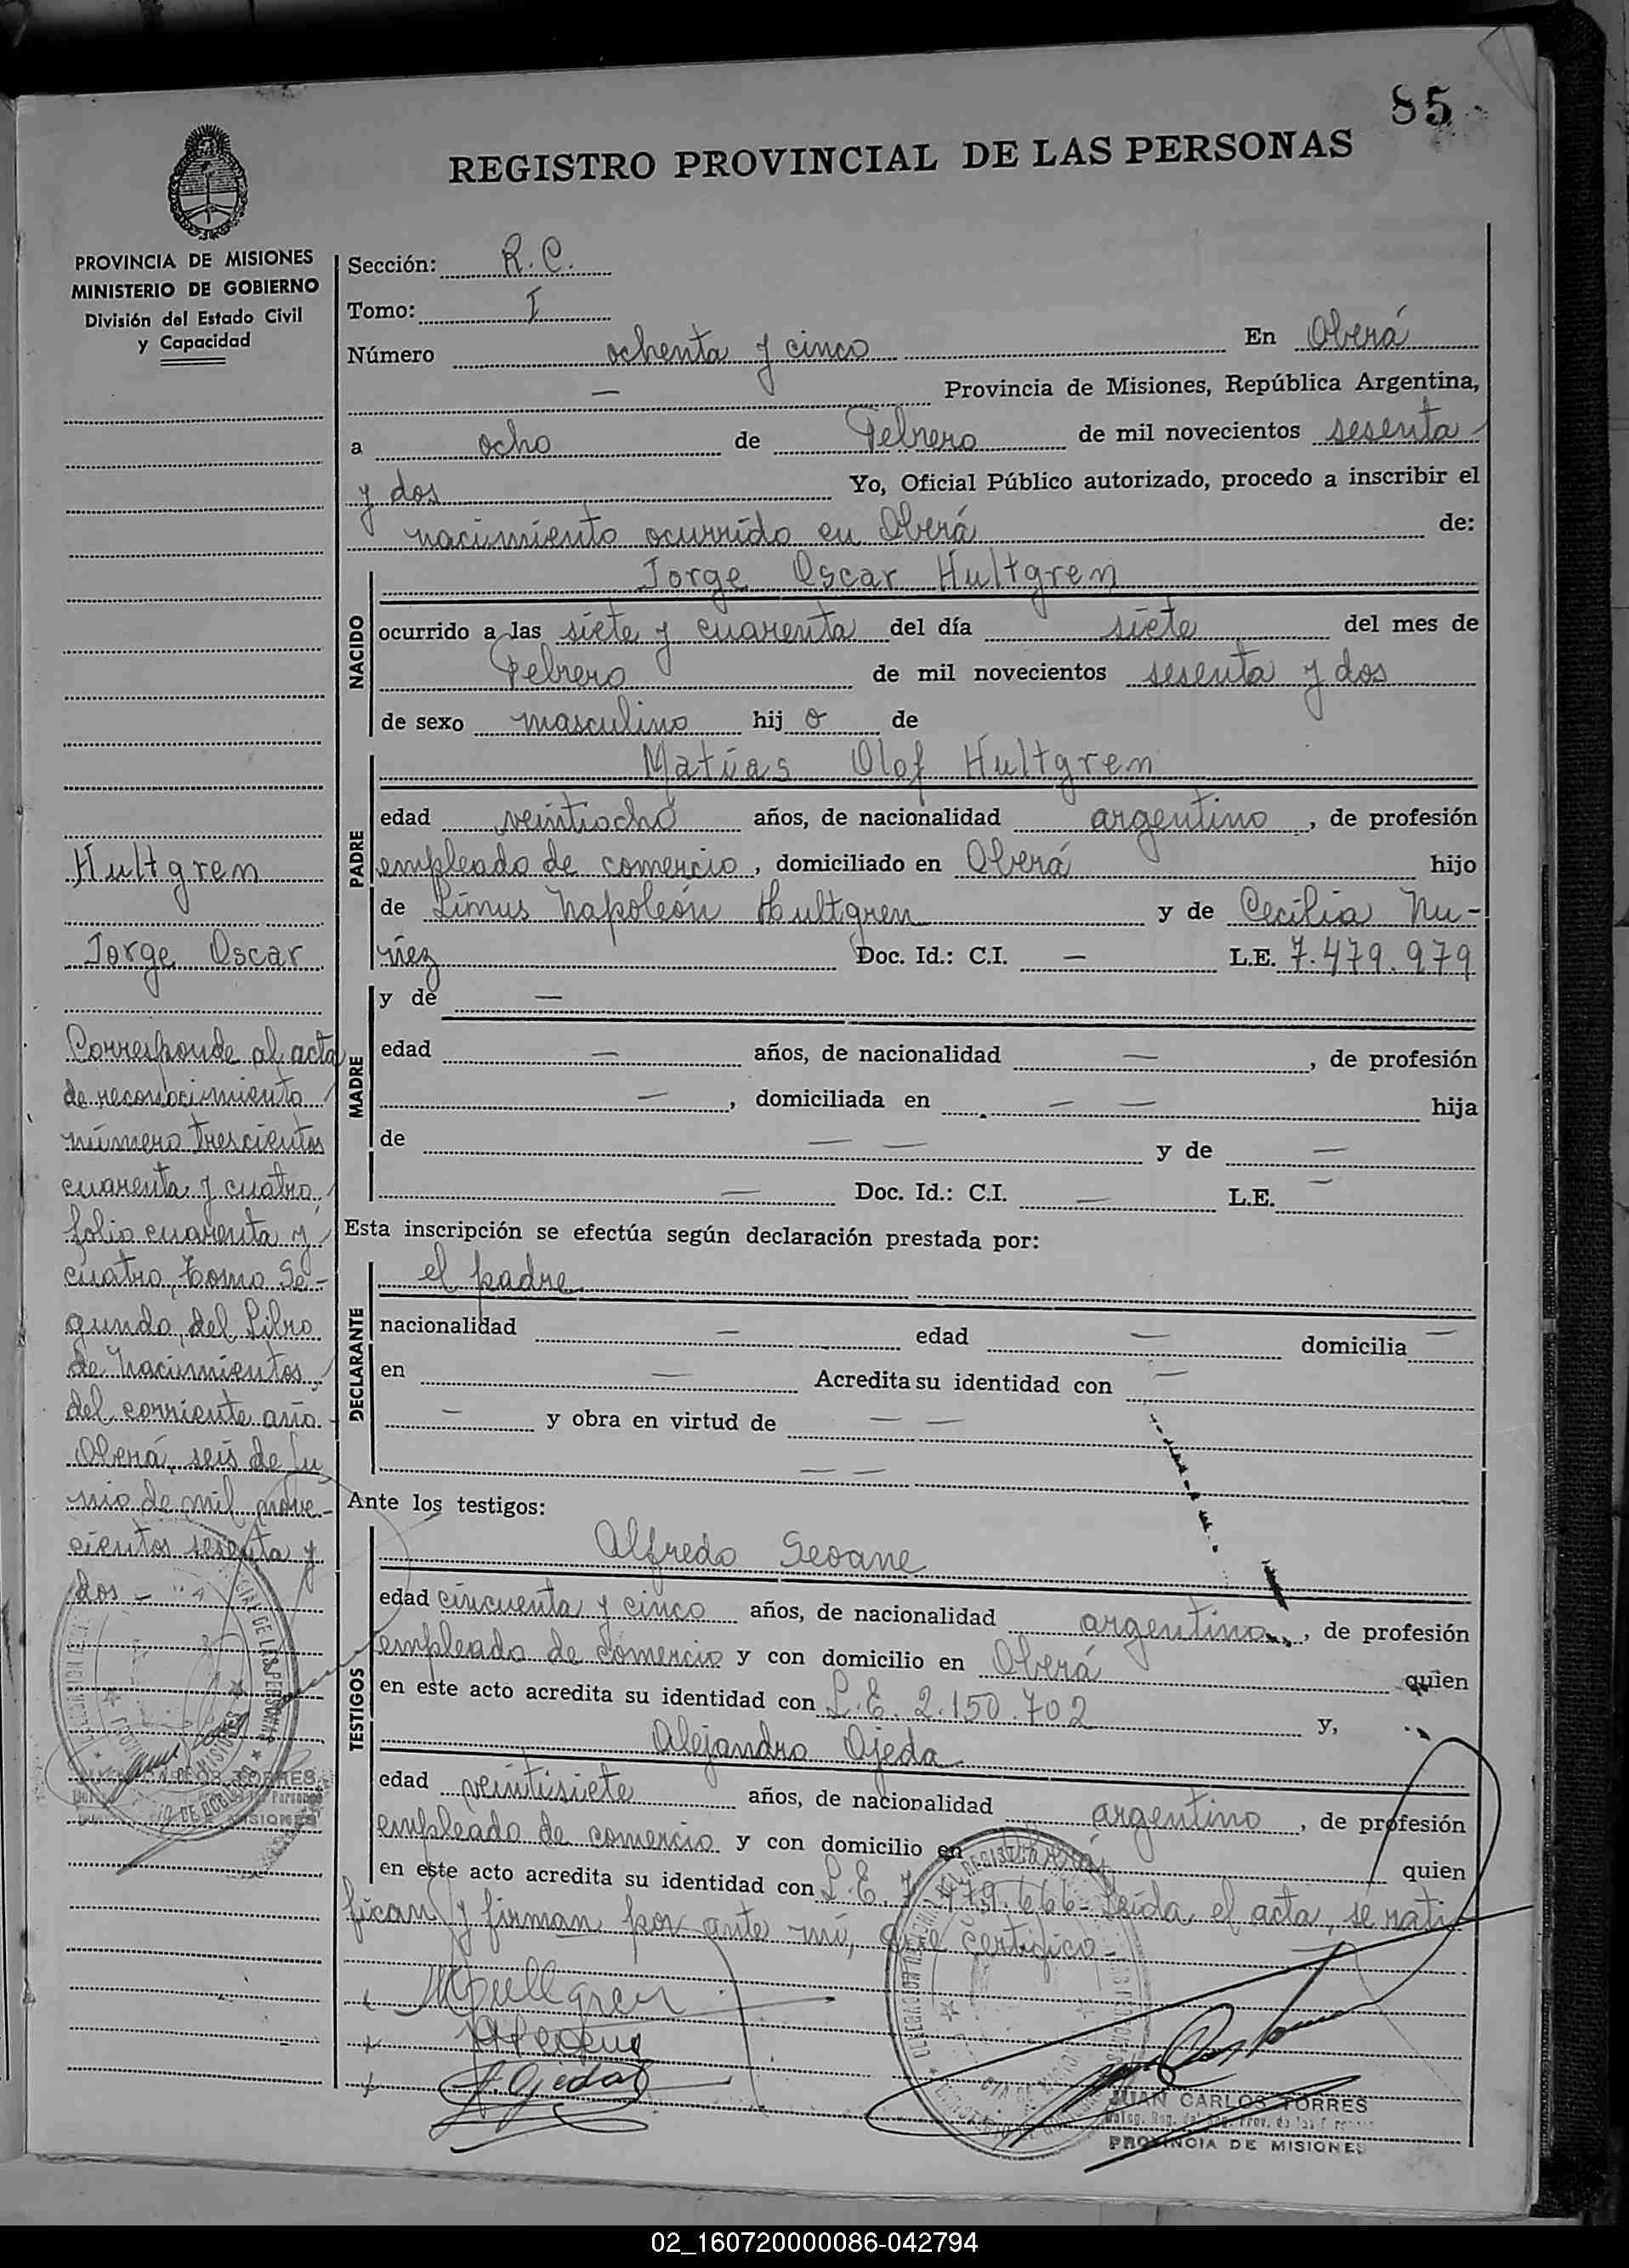 85
REGISTRO PROVINCIAL DE LAS PERSONAS
PROVINCIA DE MISIONES
MINISTERIO DE GOBIERNO
División del Estado Civil
y Capacidad
Hultgren
Jorge Oscar
Corresponde al acta
de reconocimiento
número trescientos
cuarenta y cuatro,
folio cuarenta y
cuatro, Tomo Se-
gundo, del Libro
de Nacimientos,
del corriente año.
Oberá, seis de Ju
nio de mil nove-
cientos sesenta y
dos -
Sección: R. C.
Tomo: I
Número ochenta y cinco En Oberá
— Provincia de Misiones, República Argentina,
a ocho de Febrero de mil novecientos sesenta
y dos Yo, Oficial Público autorizado, procedo a inscribir el
nacimiento ocurrido en Oberá de:
NACIDO
Jorge Oscar Hultgren
ocurrido a las siete y cuarenta del día siete del mes de
Febrero de mil novecientos sesenta y dos
de sexo masculino hij o de
PADRE
Matías Olof Hultgren
edad veintiocho años, de nacionalidad argentino, de profesión
empleado de comercio, domiciliado en Oberá hijo
de Linus Napoleón Hultgren y de Cecilia Nu-
ñez Doc. Id.: C.I. — L.E. 7.479.979
MADRE
y de —
edad — años, de nacionalidad —, de profesión
—, domiciliada en — — hija
de — — y de —
— Doc. Id.: C.I. — L.E. —
Esta inscripción se efectúa según declaración prestada por:
DECLARANTE
el padre
nacionalidad — edad — domicilia —
en — Acredita su identidad con —
— y obra en virtud de — —
— —
Ante los testigos:
TESTIGOS
Alfredo Seoane
edad cincuenta y cinco años, de nacionalidad argentino, de profesión
empleado de comercio y con domicilio en Oberá quien
en este acto acredita su identidad con L.E. 2.150.702 y,
Alejandro Ojeda
edad veintisiete años, de nacionalidad argentino, de profesión
empleado de comercio y con domicilio en Oberá quien
en este acto acredita su identidad con L.E. 7.479.666- Leída el acta, se rati
fican y firman por ante mí, que certifico -
MHultgren
A. Ojeda
JUAN CARLOS TORRES
PROVINCIA DE MISIONES
02_160720000086-042794